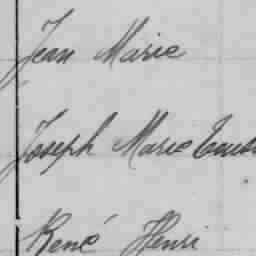 Jean Marie
Joseph Marie
René Henri